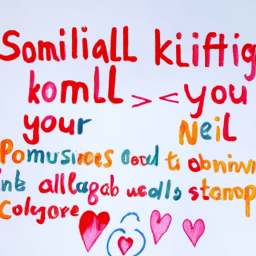 Somiliall kiiftig
komll >< you
your Neil
Pomusires ood t obnivni
ink allagab wodls stanop
Colgore